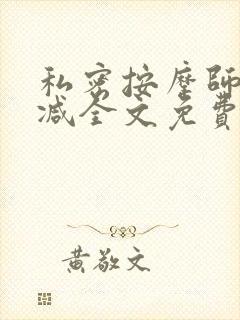 私密按摩師
减全文免費
黃敬文